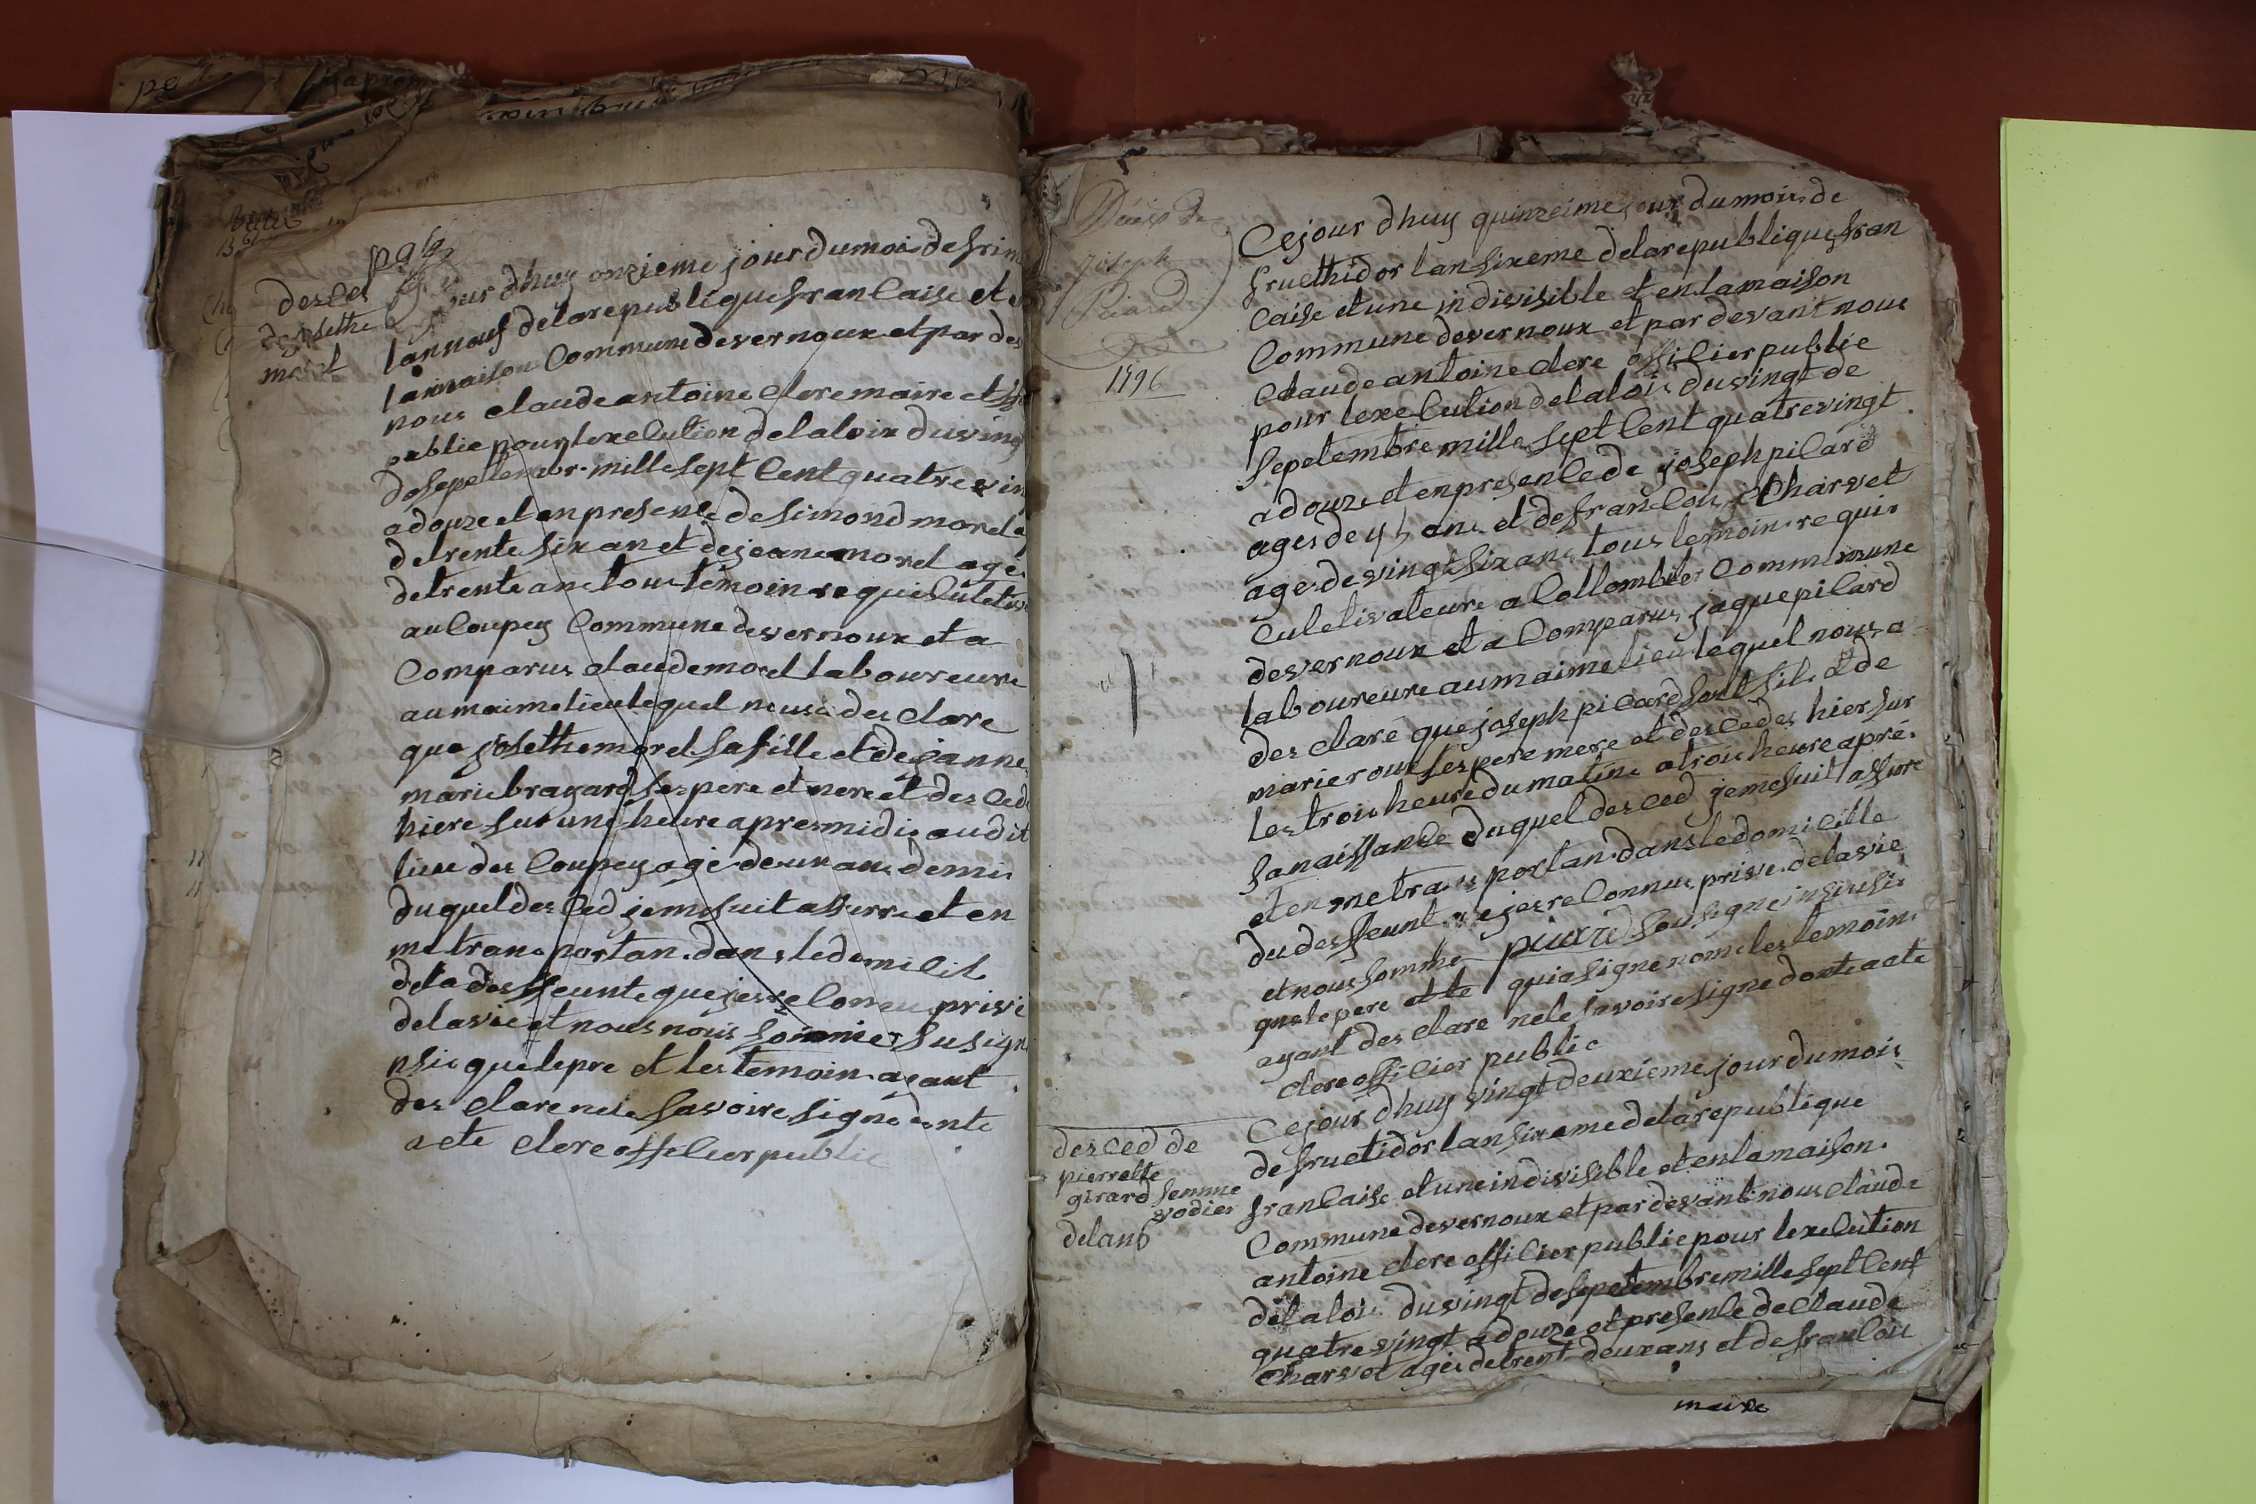 desces
de josethe
morel
jour dhuy onzieme jour du mois de frim
lan neuf delarepublique francaise et e
lamaison Commune devernoux et par des
nous claude antoine clere maire et offi
publie pour lexecution delaloix duving
desepetembr mille sept Cent quatre vin
adouze et en presence de simond morel a
detrente six an et dejeane morel age
detrente ans tous temoin requi Culetiv
au Coupey Commune devernoux et a
Comparus claude morel laboureure
aumaime lieu lequel nous a desclare
que josethe morel safille et de janne
marie brayard ses pere et mere et desced
hiere sur une heure apres midis audit
lieu des Coupey age deun ans demis
duquel desced je me suit assurre et en
me transportan dans ledomicile
dela desfeunte que jesre Connu prive
delavie et nous nous sommes susigne
nsis que lepre et les temoin ayant
desclare nele savoire signe donte
acte clere officier public
Déces de
Joseph
Picard
1796
Cejour dhuy quinzeime jour dumois de
fructhidor lan sixeme delarepublique fran
caise et une indivisible et en lamaison
Commune devernoux et par devant nous
Claude antoine clere officier publie
pour lexecution delaloix duvingt de
Sepetembre mille sept Cent quatrevingt
adouze et en presence de joseph picard
ages de 45 ans et de francois Charvet
age de vingt six ans tous temoin requis
Culetivateure a Collombier Commune
devernoux et a Comparus jaque picard
laboureure aumaime lieu lequel nous a
desclaré que joseph picard sont fils et de
marie roux ses pere mere et desces hier sur
les trois heure du matine a trois heure apré
sanaissance duquel desced jeme suit assure
et en metransportan dans ledomicille
du desfeunt que jesre Connus prive delavie
et nous somme picard sousigne insiusi
que le pere et le qui a signe nom les temoin
ayant desclare nele savoire signe donte acte
clere officier public
desced de
pierrette
girard femme
vodier
delan 6
Cejour dhuy vingt deuxieme jour du mois
de fructidor lan sixeme delarepublique
francaise et une indivisible et en lamaison
Commune devernoux et pardevant nous Claude
antoine clere officier publie pour lexecution
delaloix duvingt desepetembre mille sept Cent
quatre vingt adouze et presence de Claude
Charvet ages detrent deux ans et de francois
maire